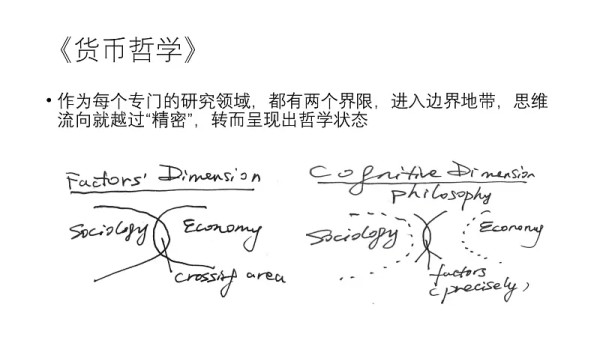 《货币哲学》
• 作为每个专门的研究领域，都有两个界限，进入边界地带，思维
流向就越过“精密”，转而呈现出哲学状态
Factors' Dimension
Sociology Economy
crossing area
Cognitive Dimension
philosophy
Sociology Economy
factors
(precisely)